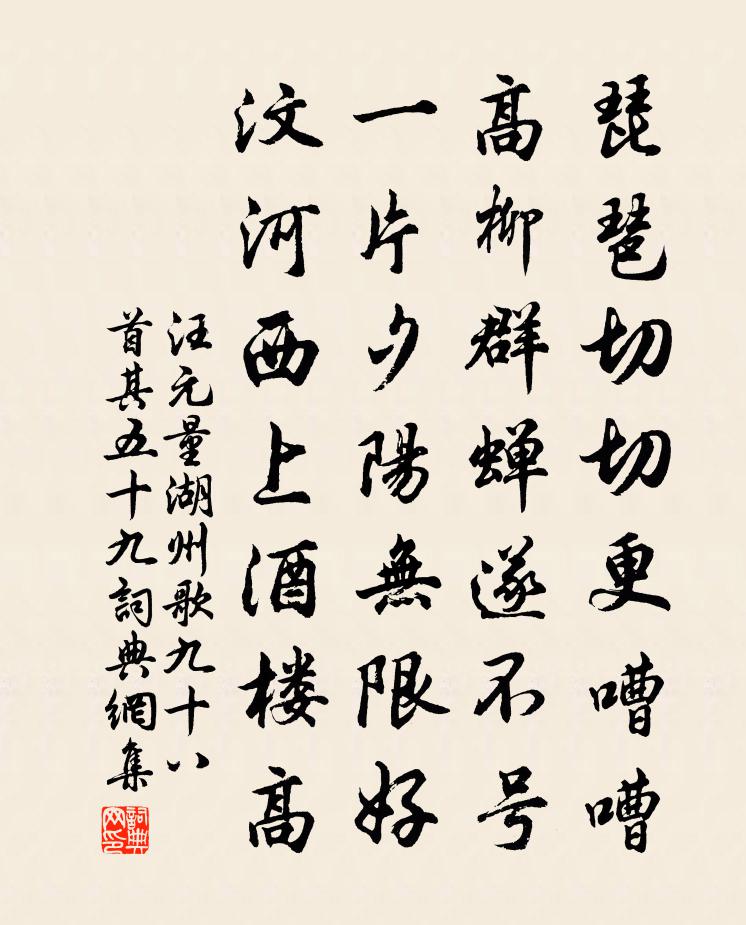 琵琶切切更嘈嘈
高柳群蝉遂不号
一片夕陽無限好
汶河西上酒楼高
汪元量湖州歌九十八
首其五十九詞典網集
詞典網印